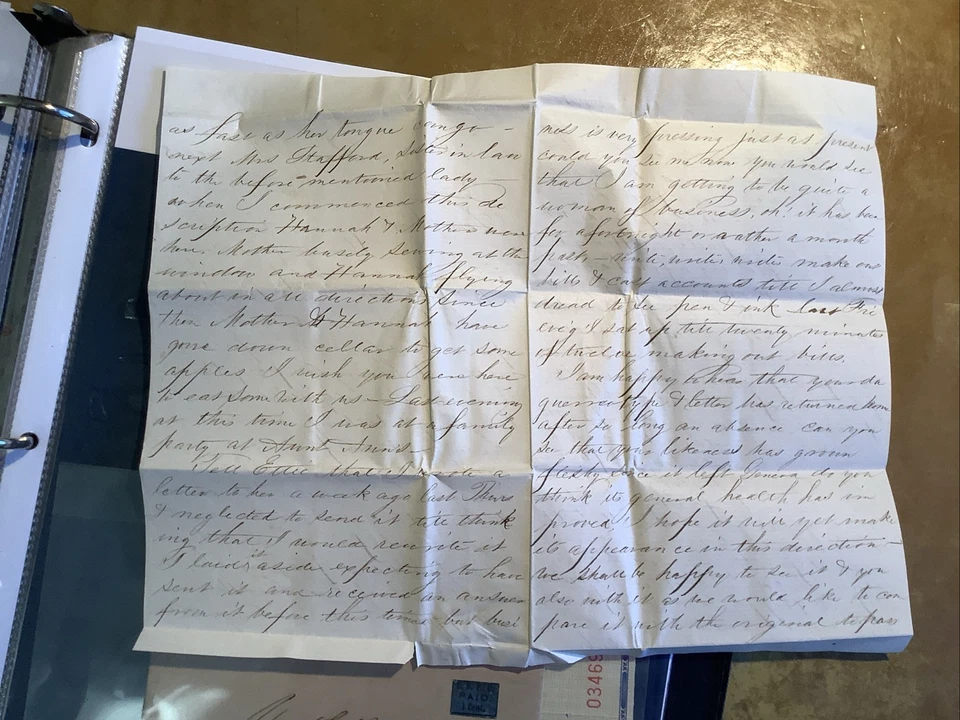 as fast as her tongue can go -
next Mrs Stafford, Sister in law
to the before mentioned lady -
when I commenced this de
scription Hannah & Mother were
here. Mother busily sewing at the
window and Hannah flying
about in all directions since
then Mother & Hannah have
gone down cellar to get some
apples. I wish you were here
to eat some with us - Last evening
at this time I was at a family
party at Aunt Ann's -
Tell Ettie that I wrote a
letter to her a week ago last Thurs
& neglected to send it till think
ing that I would rewrite it
I laid it aside expecting to have
sent it and received an answer
from it before this time but busi
ness is very pressing just at present
could you see me now you would see
that I am getting to be quite a
woman of business, oh! it has been
for a fortnight or rather a month
past - write write write make out
bills & cast accounts till I almost
dread to see pen & ink Last Fri
eve'g I sat up till twenty minutes
of twelve making out bills.
I am happy to hear that your da
guerreotype & letter has returned home
after so long an absence can you
see that your likeness has grown
fleshy since it left Geneva do you
think its general health has im
proved I hope it will yet make
its appearance in this direction -
we shall be happy to see it & you
also with it as we would like to com
pare it with the original to pass
PAID
03469